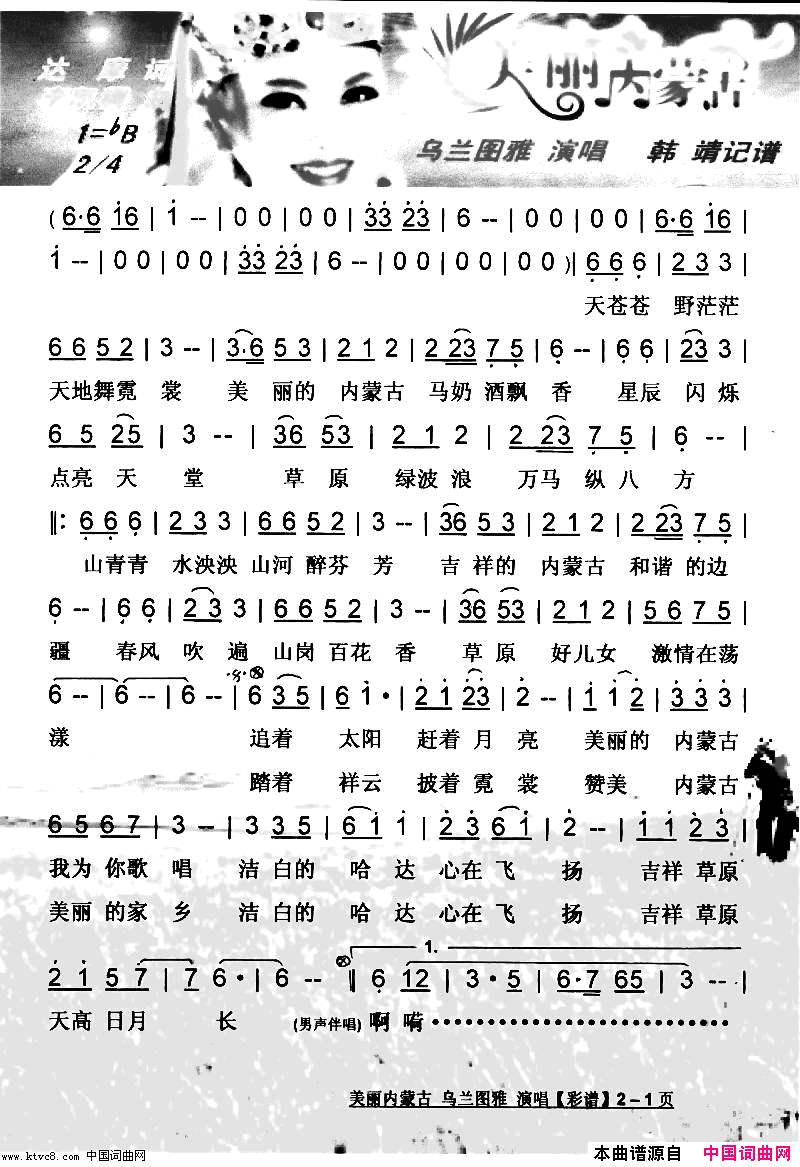 达 摩 词
美丽内蒙古
1=♭B
2/4
乌兰图雅 演唱 韩 靖记谱
(6·6 i6 | i -- | 0 0 | 0 0 | 33 23 | 6 -- | 0 0 | 0 0 | 6·6 i6 |
i -- | 0 0 | 0 0 | 33 23 | 6 -- | 0 0 | 0 0 | 0 0 )| 6 6 6 | 2 3 3 |
天苍苍 野茫茫
6 6 5 2 | 3 -- | 3·6 5 3 | 2 1 2 | 2 23 7 5 | 6 -- | 6 6 | 23 3 |
天地舞霓 裳 美 丽的 内蒙古 马奶 酒飘 香 星辰 闪烁
6 5 25 | 3 -- | 36 53 | 2 1 2 | 2 23 7 5 | 6 -- |
点亮 天 堂 草 原 绿波 浪 万马 纵 八 方
‖: 6 6 6 | 2 3 3 | 6 6 5 2 | 3 -- | 36 5 3 | 2 1 2 | 2 23 7 5 |
山青青 水泱泱 山河 醉芬 芳 吉 祥的 内蒙古 和谐 的边
6 -- | 6 6 | 2 3 3 | 6 6 5 2 | 3 -- | 36 53 | 2 1 2 | 5 6 7 5 |
疆 春风 吹 遍 山岗 百花 香 草 原 好儿女 激情在荡
6 -- | 6 -- | 6 -- | 6 3 5 | 6 i · | 2 i 23 | 2 -- | i i 2 | 3 3 3 |
漾 追着 太阳 赶着 月 亮 美丽的 内蒙古
踏着 祥云 披着 霓 裳 赞美 内蒙古
6 5 6 7 | 3 -- | 3 3 5 | 6 i i | 2 3 6 i | 2 -- | i i 2 3 |
我为 你歌 唱 洁 白的 哈 达 心在 飞 扬 吉祥 草原
美丽 的家 乡 洁 白的 哈 达 心在 飞 扬 吉祥 草原
1.
2 i 5 7 | 7 6 · | 6 -- ‖ 6 12 | 3 · 5 | 6·7 65 | 3 -- |
天高 日月 长 (男声伴唱) 啊 嗬••••••••••••••••
美丽内蒙古 乌兰图雅 演唱【彩谱】2-1页
www.ktvc8.com 中国词曲网
本曲谱源自 中国词曲网